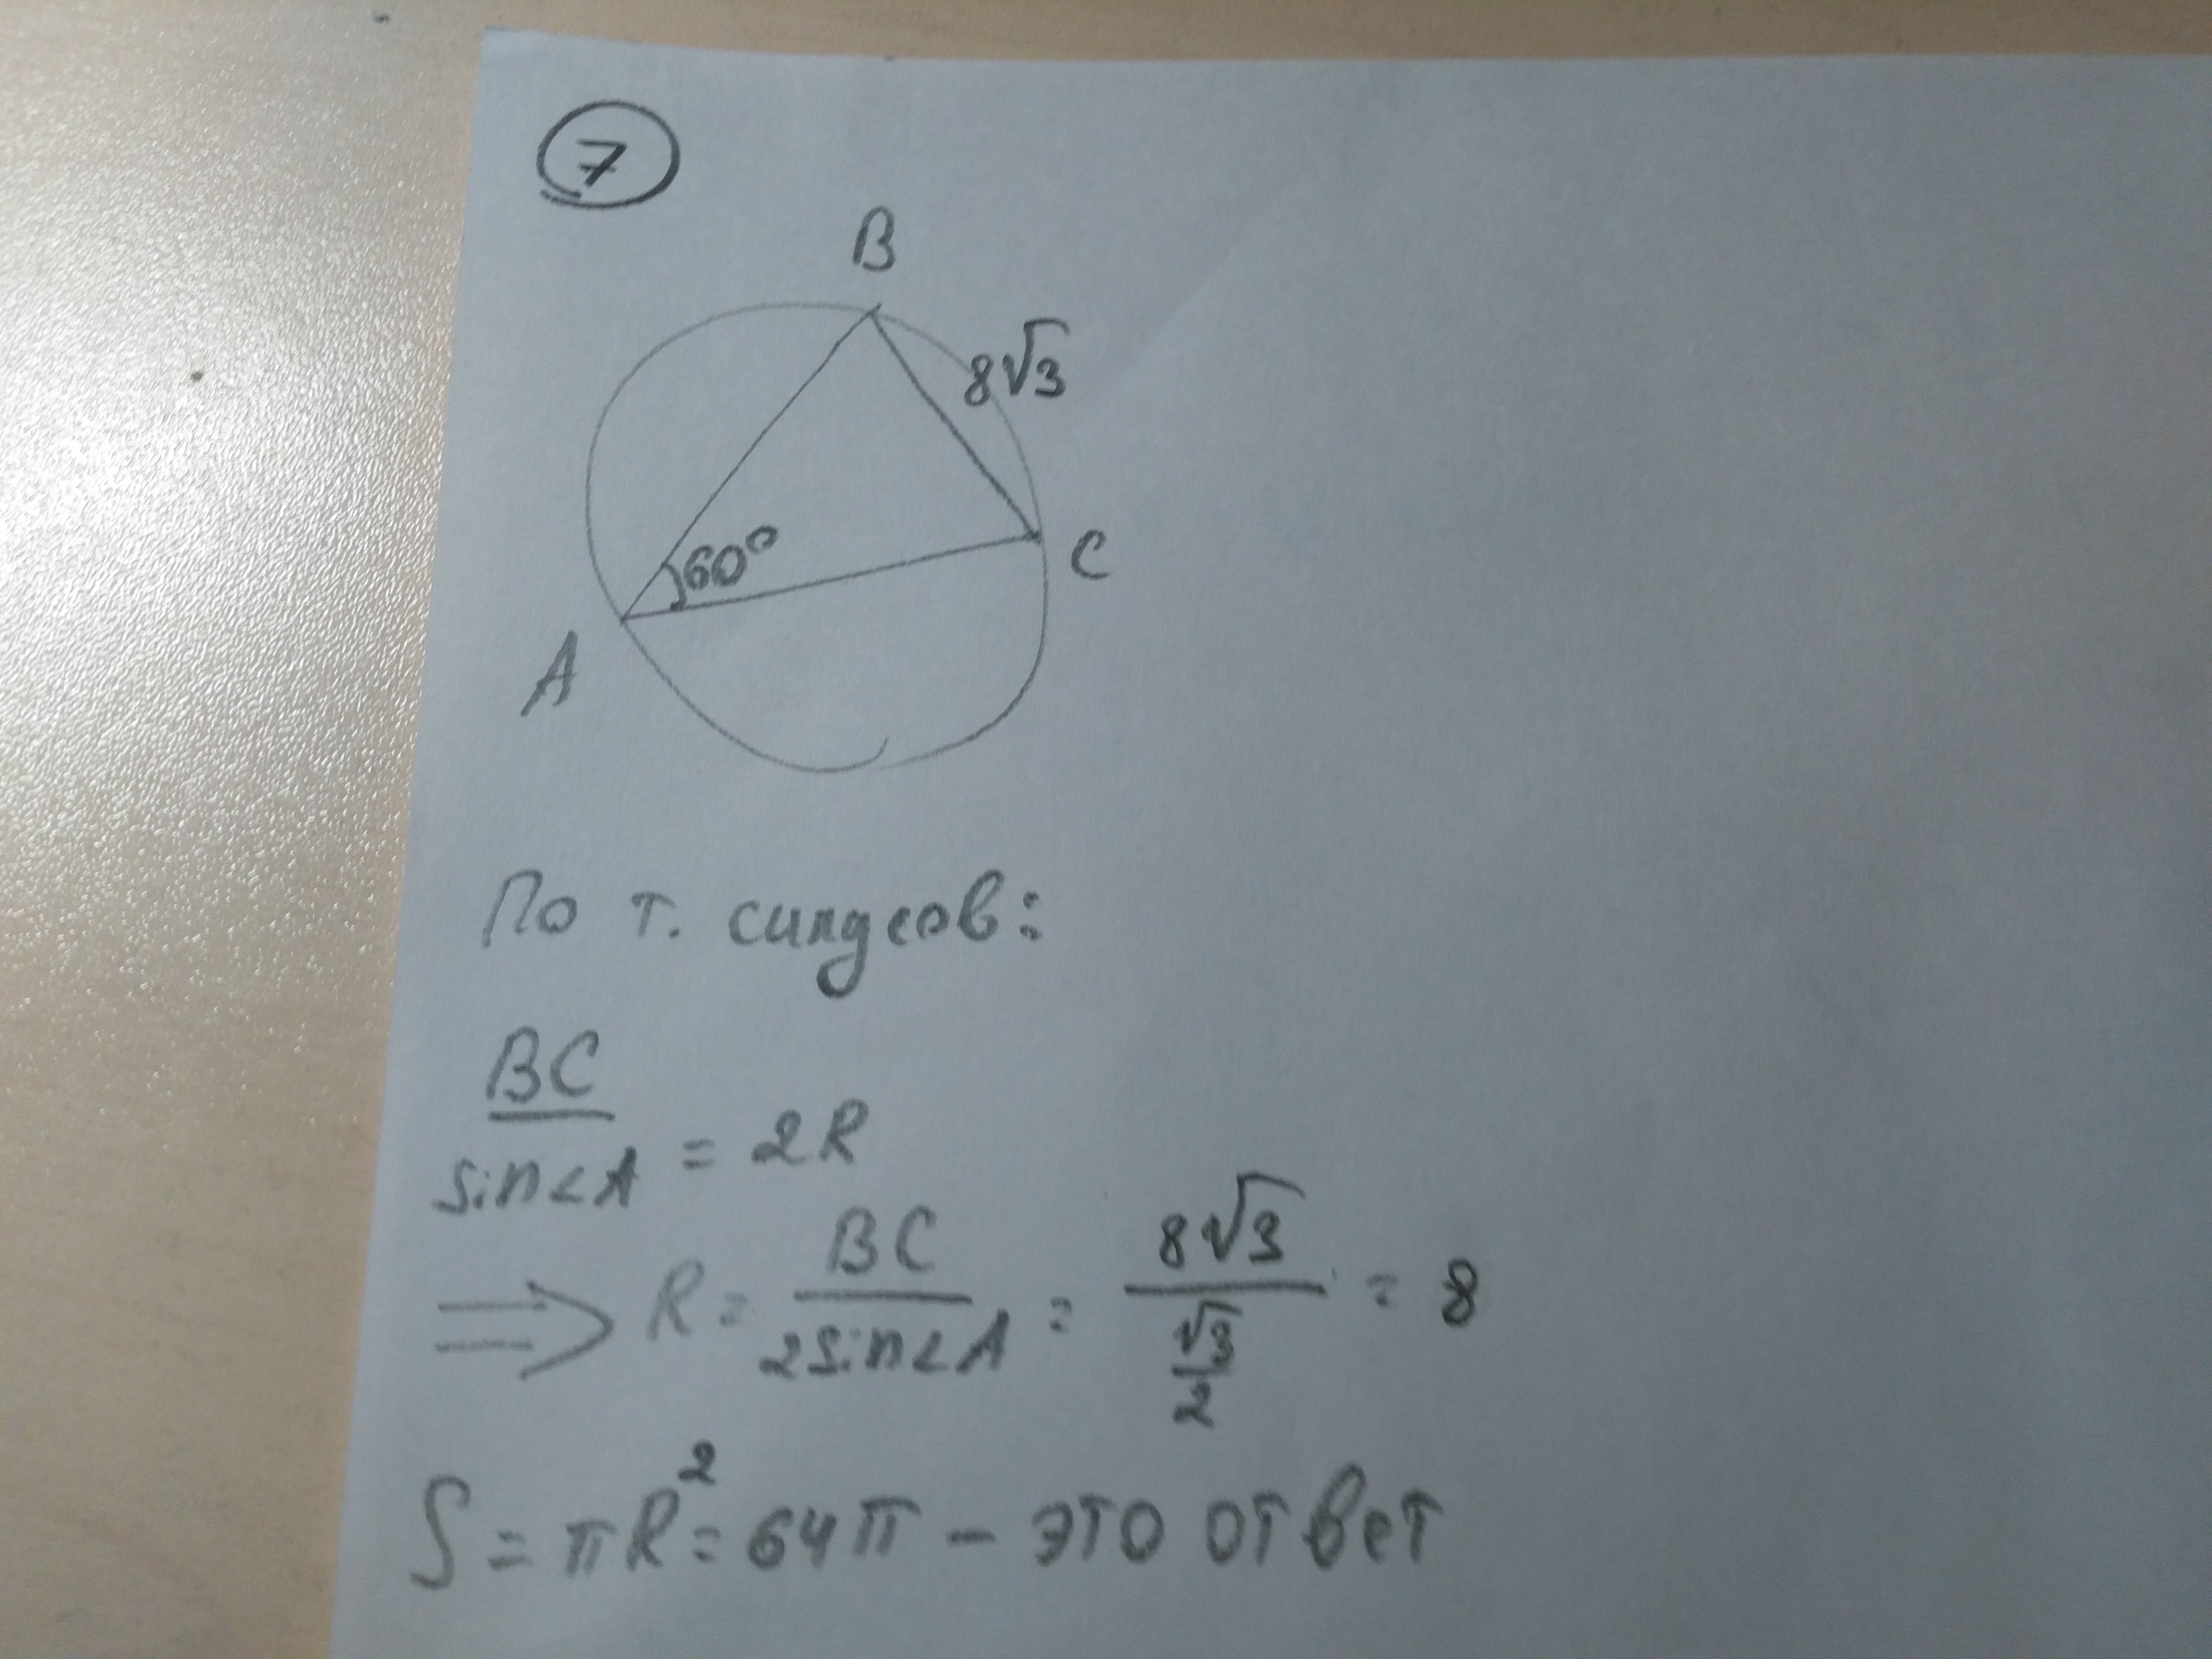 7
B
8√3
60°
C
A
По т. синусов:
BC
sin∠A = 2R
⇒ R = BC / 2sin∠A = 8√3 / (√3/2) = 8
S = πR² = 64π – это ответ